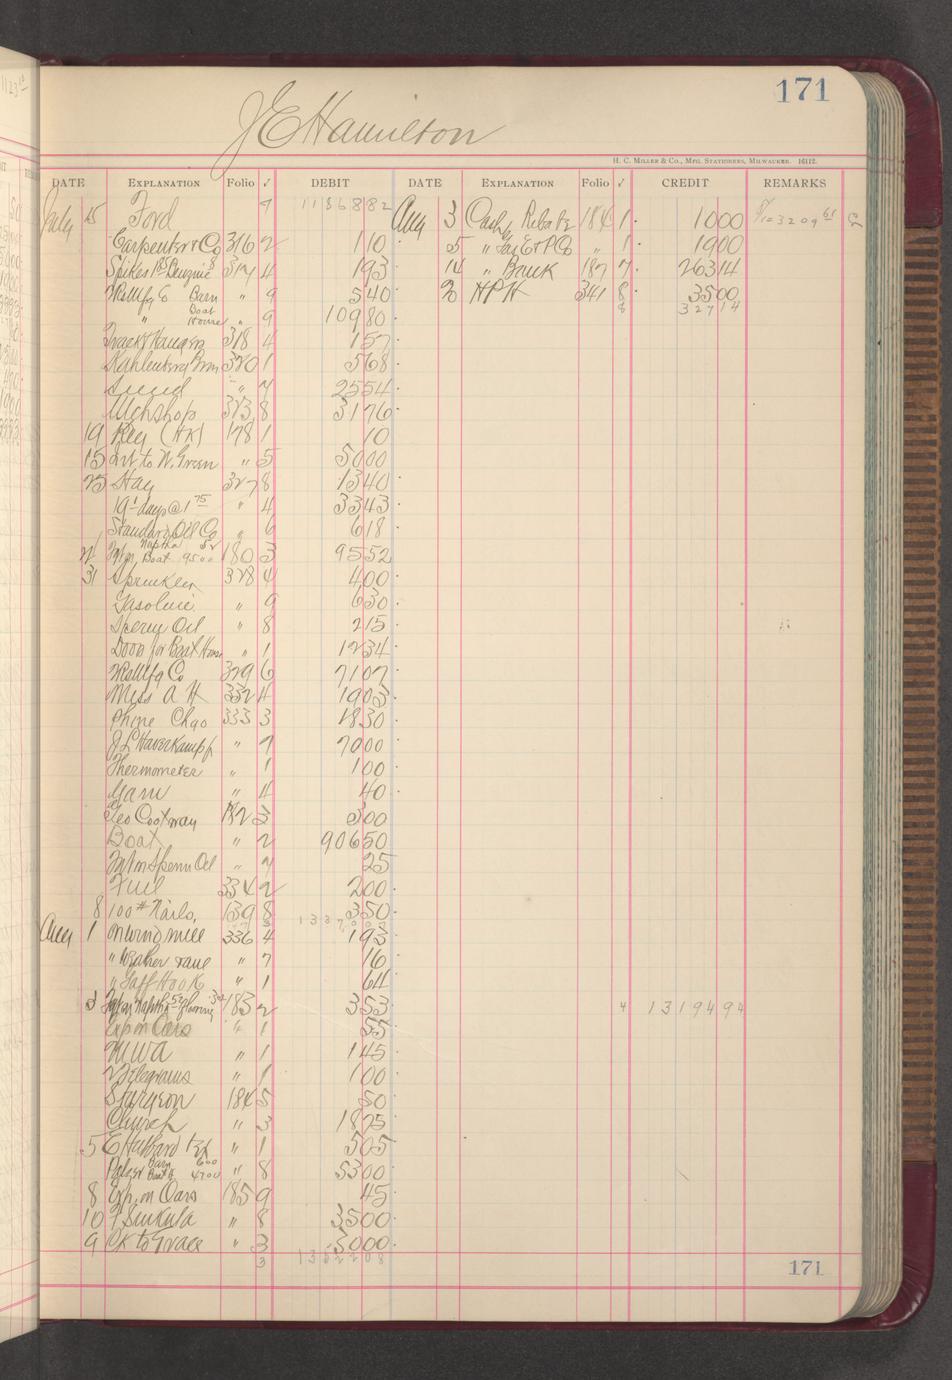 171
J E Hamilton
H. C. Miller & Co., Mfg. Stationers, Milwaukee. 16112.
DATE EXPLANATION Folio √ DEBIT DATE EXPLANATION Folio √ CREDIT REMARKS
July 15 Ford 7 1136882 Aug 3 Cash, Rebate 184 1 1000
Carpenter & Co 316 2 110 5 " E & P Co " 1 1900
Spikes Benzine 317 4 193 14 " Bank 187 7 26314
Barn " 9 540 20 H P H 341 8 3500
" Boat House " 9 10980 8 32714
Track & Hangers 318 4 157
Kahlenberg Bros 320 1 568
" 7 2554
Mch Shop 323 8 3176
19 Key (HK) 178 1 10
15 Int to W. Green " 5 5000
25 Hay 327 8 1340
19 days @ 1 75 " 4 3343
Standard Oil Co " 6 618
Naptha 52
21 Boat 9500 180 3 9552
31 Sprinkler 328 4 400
Gasoline " 9 630
Sperm Oil " 8 215
Door for Boat House " 1 1234
Mfg Co 329 6 7107
Miss A H 332 4 1905
Phone Chgo 333 3 1830
J L Haverkampf " 7 7000
Thermometer " 1 100
Yarn " 4 40
Geo Cootway 182 3 300
Boat " 2 90650
Sperm Oil " 7 25
Fuel 334 2 200
8 100# Nails, 139 8 350
Aug 1 on wind mill 336 4 193
" Weather vane " 7 16
" Gaff Hook " 1 64
3 Naptha 183 2 353 4 1319494
Exp on Oars " 1 55
M W A " 1 145
2 Telegrams " 1 100
Sturgeon 184 5 50
Church " 3 1875
5 E Hubbard " 1 505
Palmer Barn 600 Boat H 4700 " 8 5300
8 Exp. on Oars 185 9 45
10 F Sinkula " 8 3500
9 Ck to Grace " 3 5000
3 1352208
171